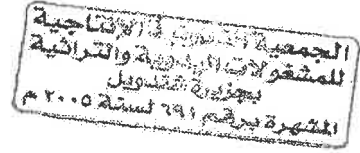 الجمعية الإنتاجية
للمشغولات اليدوية والتراثية
بجزيرة القنديل
المشهرة برقم ٦٩١ لسنة ٢٠٠٥ م